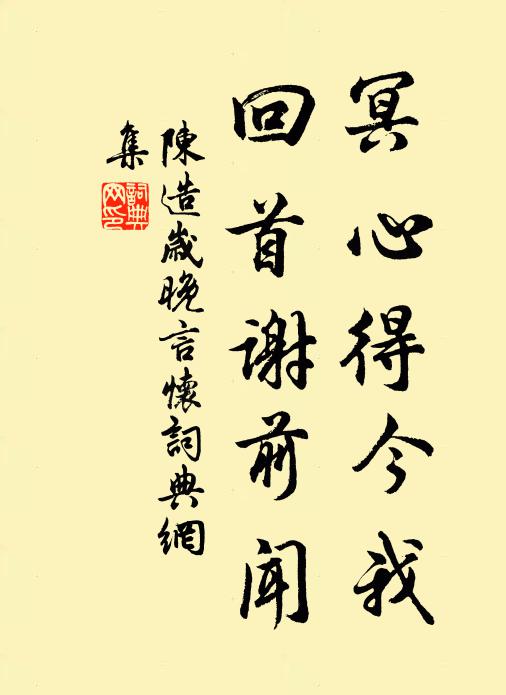 冥心得今我
回首谢前闻
陳造歲晚言懷詞典網
集
詞典网印